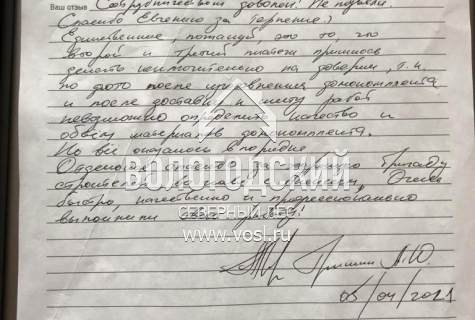 Ваш отзыв Сотрудничеством доволен! Не подвели.
Спасибо Евгению за терпение:)
Единственное, пожалуй это то, что
второй и третий платежи пришлось
делать исключительно на доверии, т.к.
по фото после изготовления домокомплекта
и после доставки к месту работ
невозможно определить качество и
объём материалов домокомплекта.
Но всё оказалось в порядке.
Отдельное спасибо за бригаду
строителей во главе с Очень
быстро, качественно и профессионально
выполнили свою работу!
ВОЛОГОДСКИЙ
СЕВЕРНЫЙ ЛЕС
www.vosl.ru
А.Ю
05/04/2021